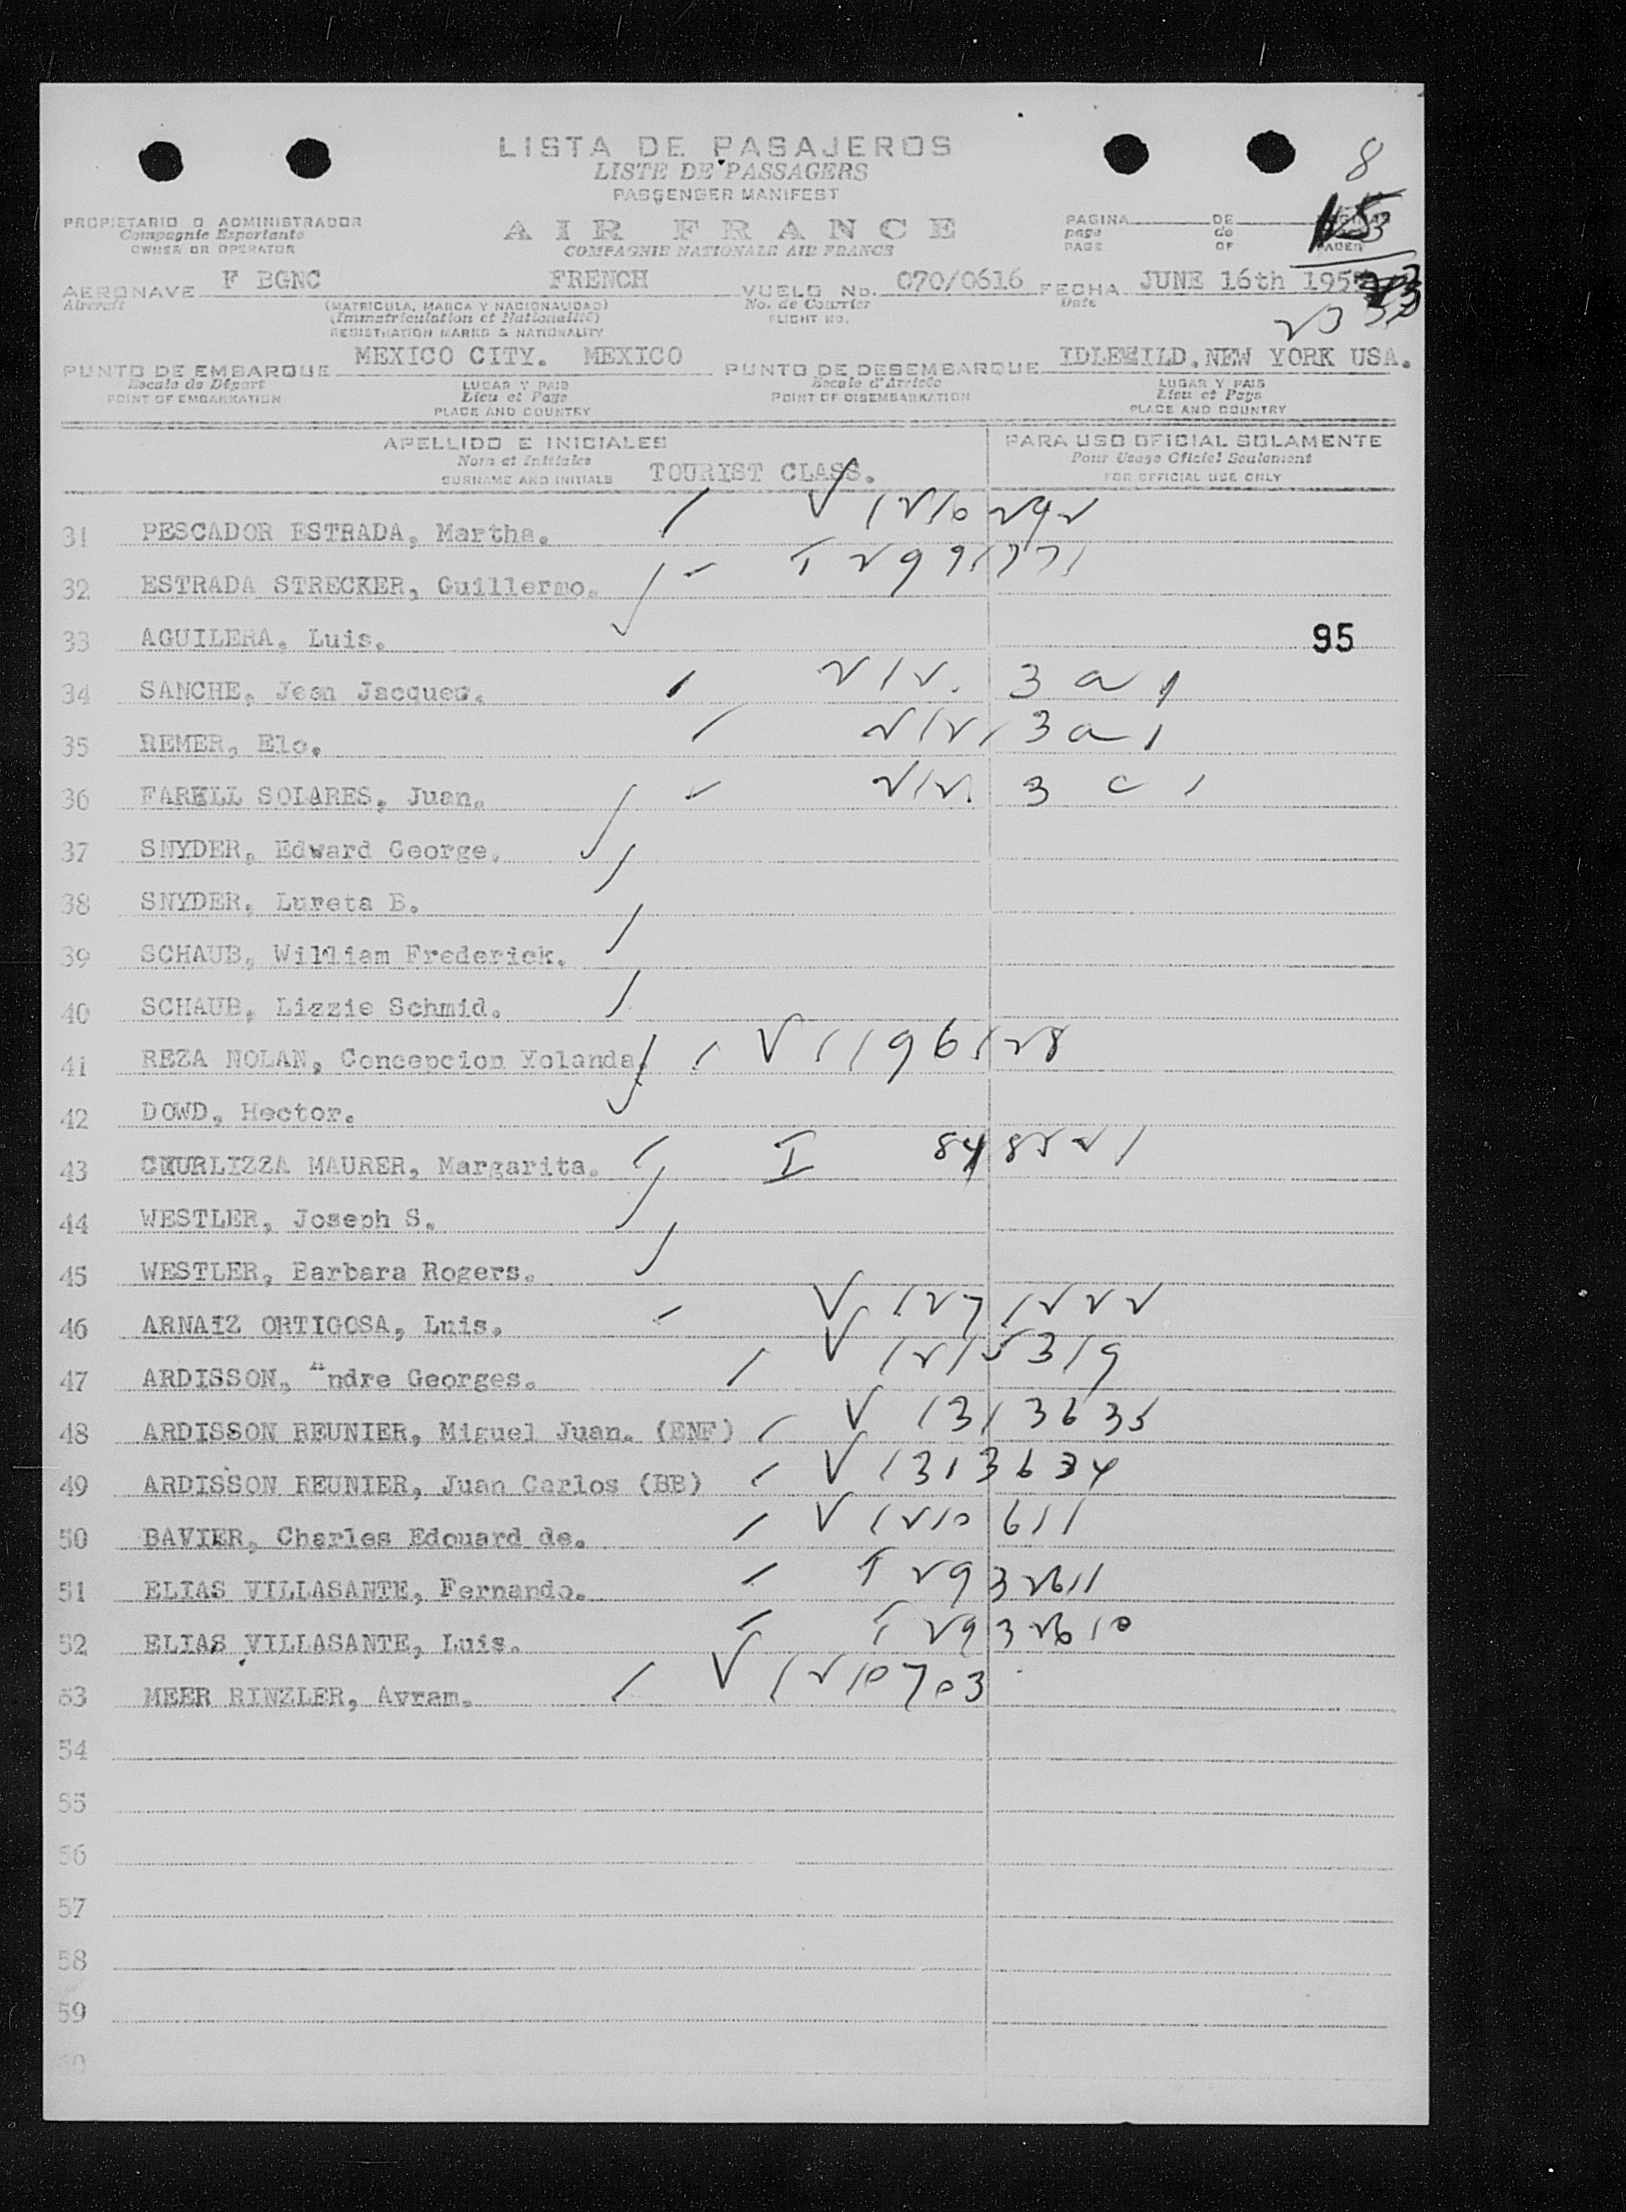 8
LISTA DE PASAJEROS
LISTE DE PASSAGERS
PASSENGER MANIFEST
PROPIETARIO O ADMINISTRADOR
Compagnie Exportante
OWNER OR OPERATOR
AIR FRANCE
COMPAGNIE NATIONALE AIR FRANCE
PAGINA DE
page de
PAGE OF
AERONAVE F BGNC FRENCH VUELO No. 070/0616 FECHA JUNE 16th
Aircraft (MATRICULA, MARCA Y NACIONALIDAD) No. de Courrier Date
(Immatriculation et Nationalité) FLIGHT NO.
REGISTRATION MARKS & NATIONALITY
PUNTO DE EMBARQUE MEXICO CITY. MEXICO PUNTO DE DESEMBARQUE IDLEWILD, NEW YORK USA.
Escale de Départ LUGAR Y PAIS Escale d'Arrivée LUGAR Y PAIS
POINT OF EMBARKATION Lieu et Pays POINT OF DISEMBARKATION Lieu et Pays
PLACE AND COUNTRY PLACE AND COUNTRY
APELLIDO E INICIALES PARA USO OFICIAL SOLAMENTE
Nom et Initiales Pour Usage Oficiel Seulement
SURNAME AND INITIALS TOURIST CLASS. FOR OFFICIAL USE ONLY
31 PESCADOR ESTRADA, Martha. V 1210292
32 ESTRADA STRECKER, Guillermo.
33 AGUILERA, Luis. 95
34 SANCHE, Jean Jacques. 212. 3 a 1
35 REMER, Elo. 212. 3 a 1
36 FARELL SOLARES, Juan. 212. 3 c 1
37 SNYDER, Edward George.
38 SNYDER, Lureta B.
39 SCHAUB, William Frederick.
40 SCHAUB, Lizzie Schmid.
41 REZA NOLAN, Concepcion Yolanda. V 1196128
42 DOWD, Hector.
43 CHURLIZZA MAURER, Margarita. I
44 WESTLER, Joseph S.
45 WESTLER, Barbara Rogers.
46 ARNAIZ ORTIGOSA, Luis. V 1271222
47 ARDISSON, Andre Georges. V 1215319
48 ARDISSON REUNIER, Miguel Juan. (ENF) V 1313635
49 ARDISSON REUNIER, Juan Carlos (BB) V 1313634
50 BAVIER, Charles Edouard de. V 1210611
51 ELIAS VILLASANTE, Fernando. T 2932611
52 ELIAS VILLASANTE, Luis. T 2932610
53 MEER RINZLER, Avram. V 1210703
54
55
56
57
58
59